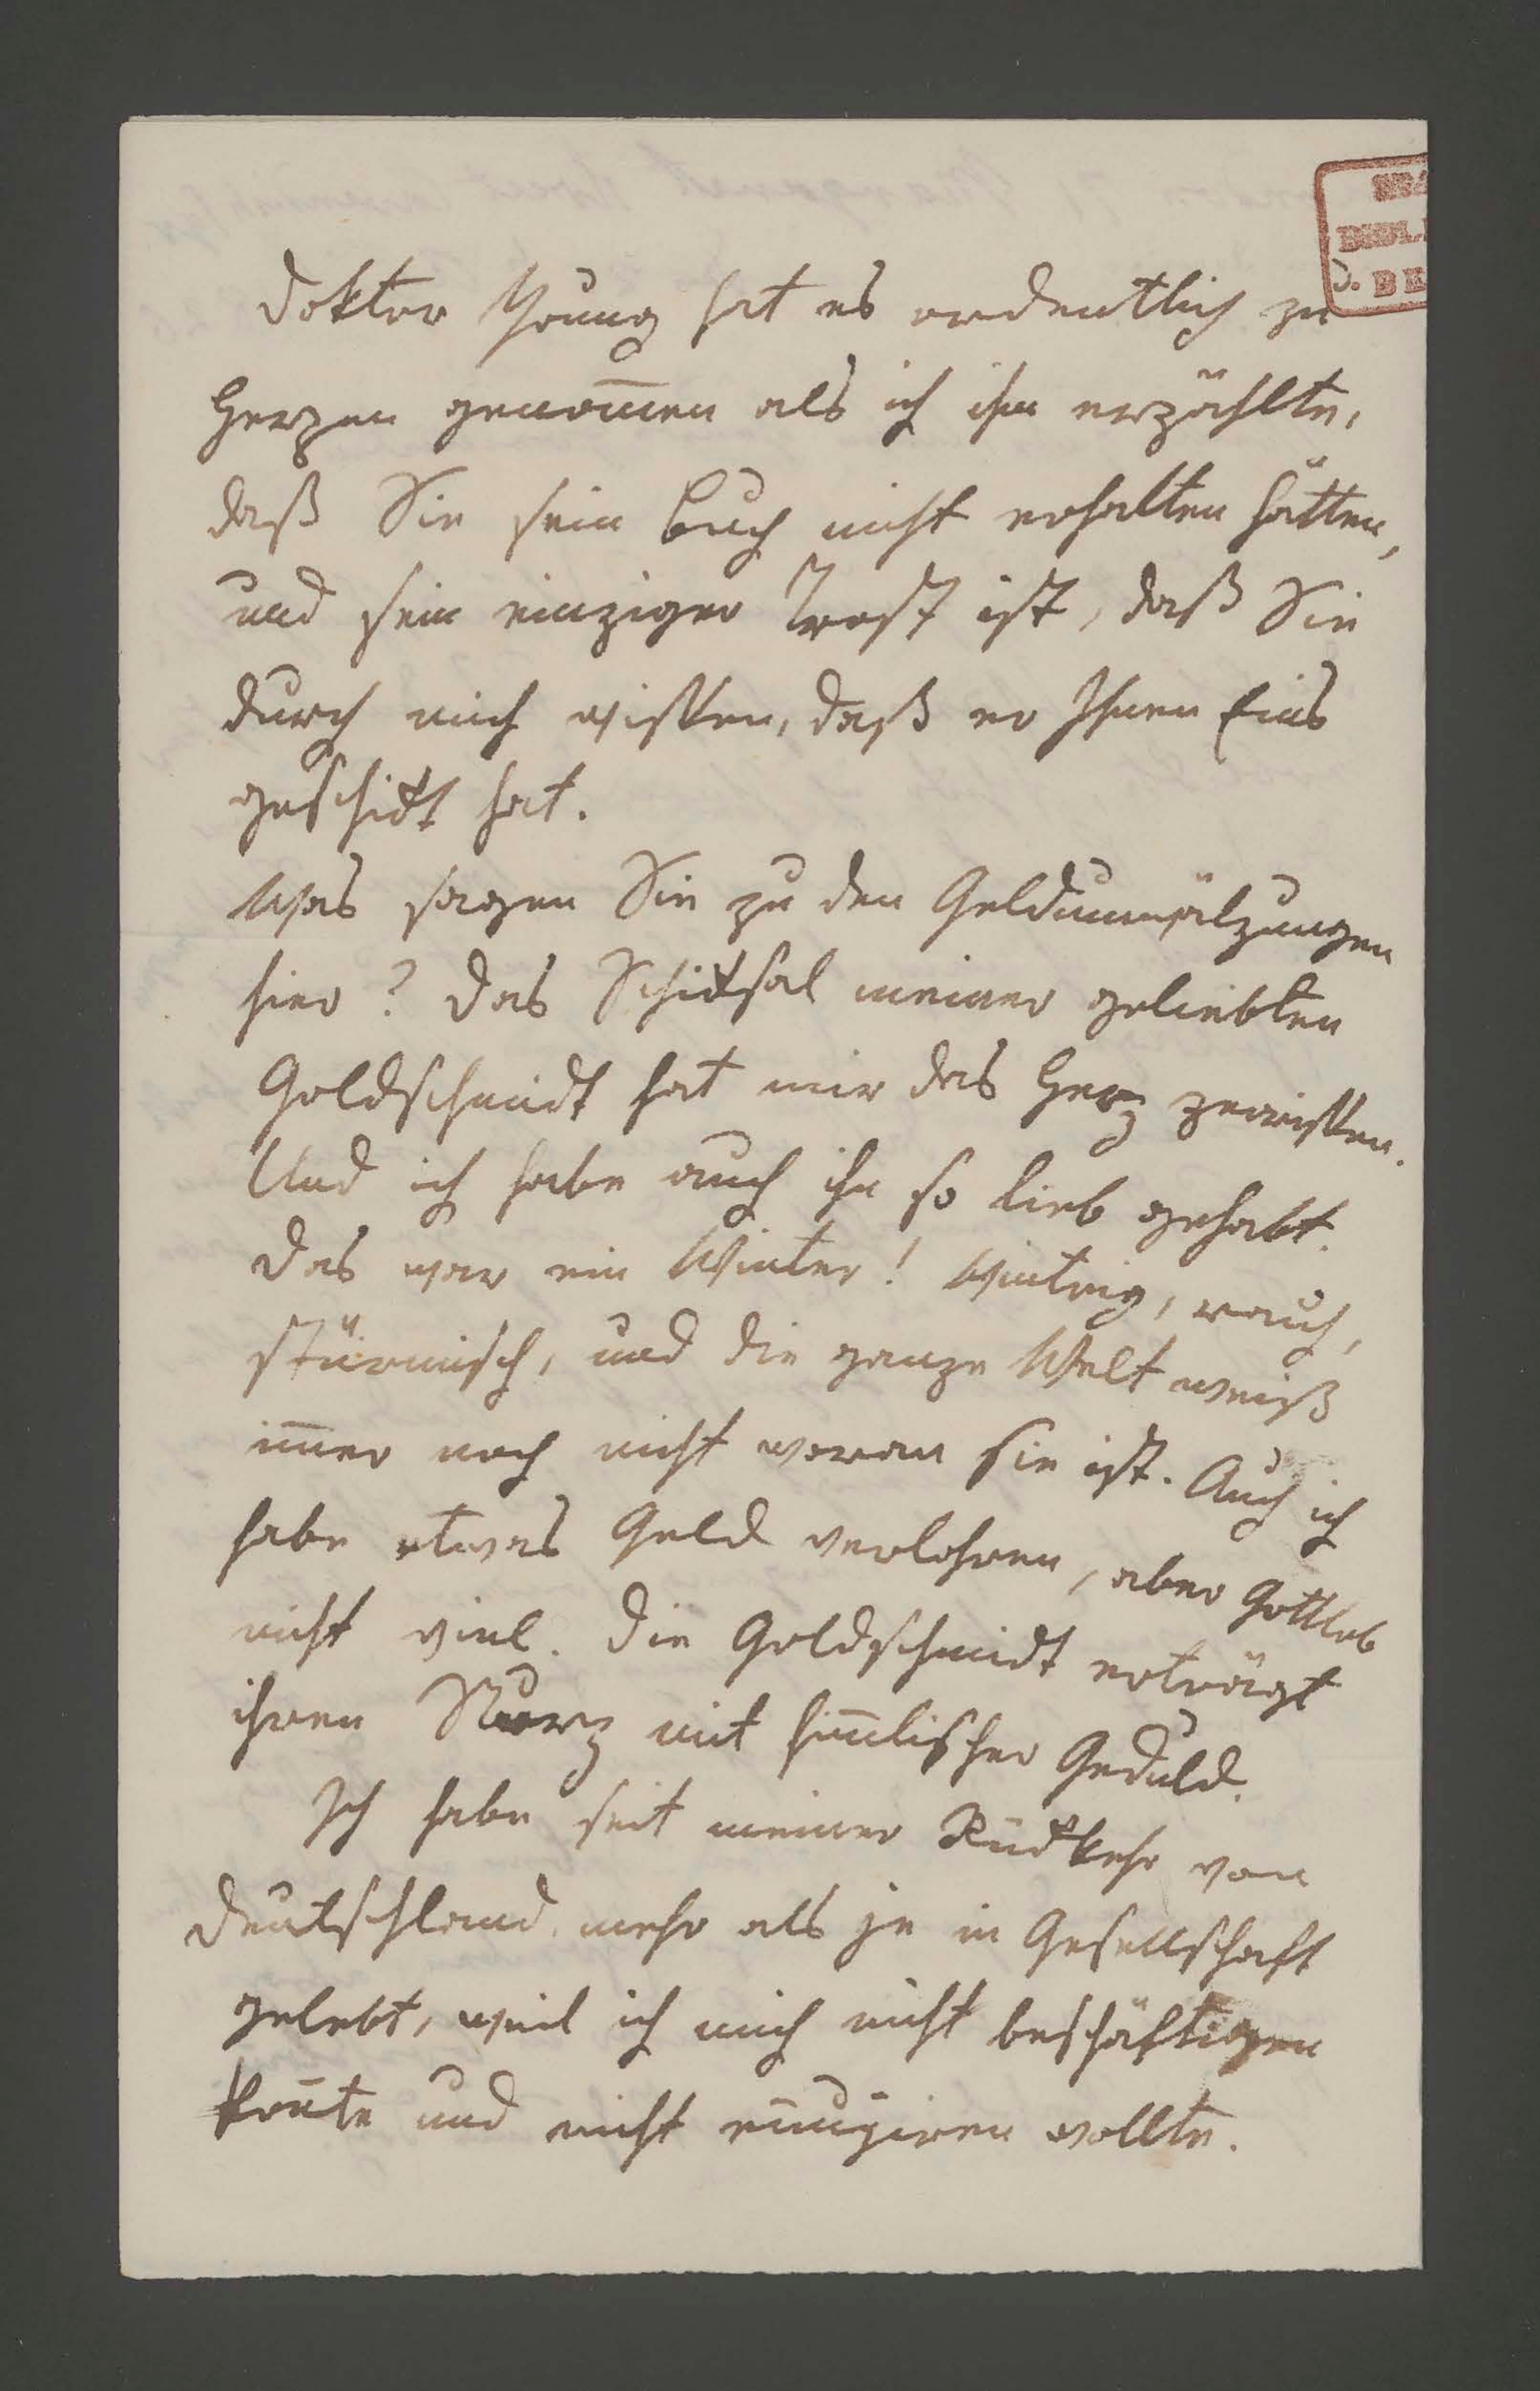 Doktor Young hat es ordentlich zu
Herzen genom̄en als ich ihm erzählte,
daß Sie sein Buch nicht erhalten hätten,
und sein einziger Trost ist, daß Sie
durch mich wissen, daß er Ihnen Eins
geschickt hat.
Was sagen Sie zu den Geldumwälzungen
hier? Das Schicksal meiner geliebten
Goldschmidt hat mir das Herz zerrissen.
Und ich habe auch ihn so lieb gehabt.
Das war ein Winter! Wintrig, rauh,
stürmisch, und die ganze Welt weiß
im̄er noch nicht woran sie ist. Auch ich
habe etwas Geld verlohren, aber Gottlob
nicht viel. Die Goldschmidt erträgt
ihren Sturz mit him̄lischer Geduld.
Ich habe seit meiner Rückkehr von
Deutschland mehr als je in Gesellschaft
gelebt, weil ich mich nicht beschäftigen
kon̄te und nicht en̄uyiren wollte.